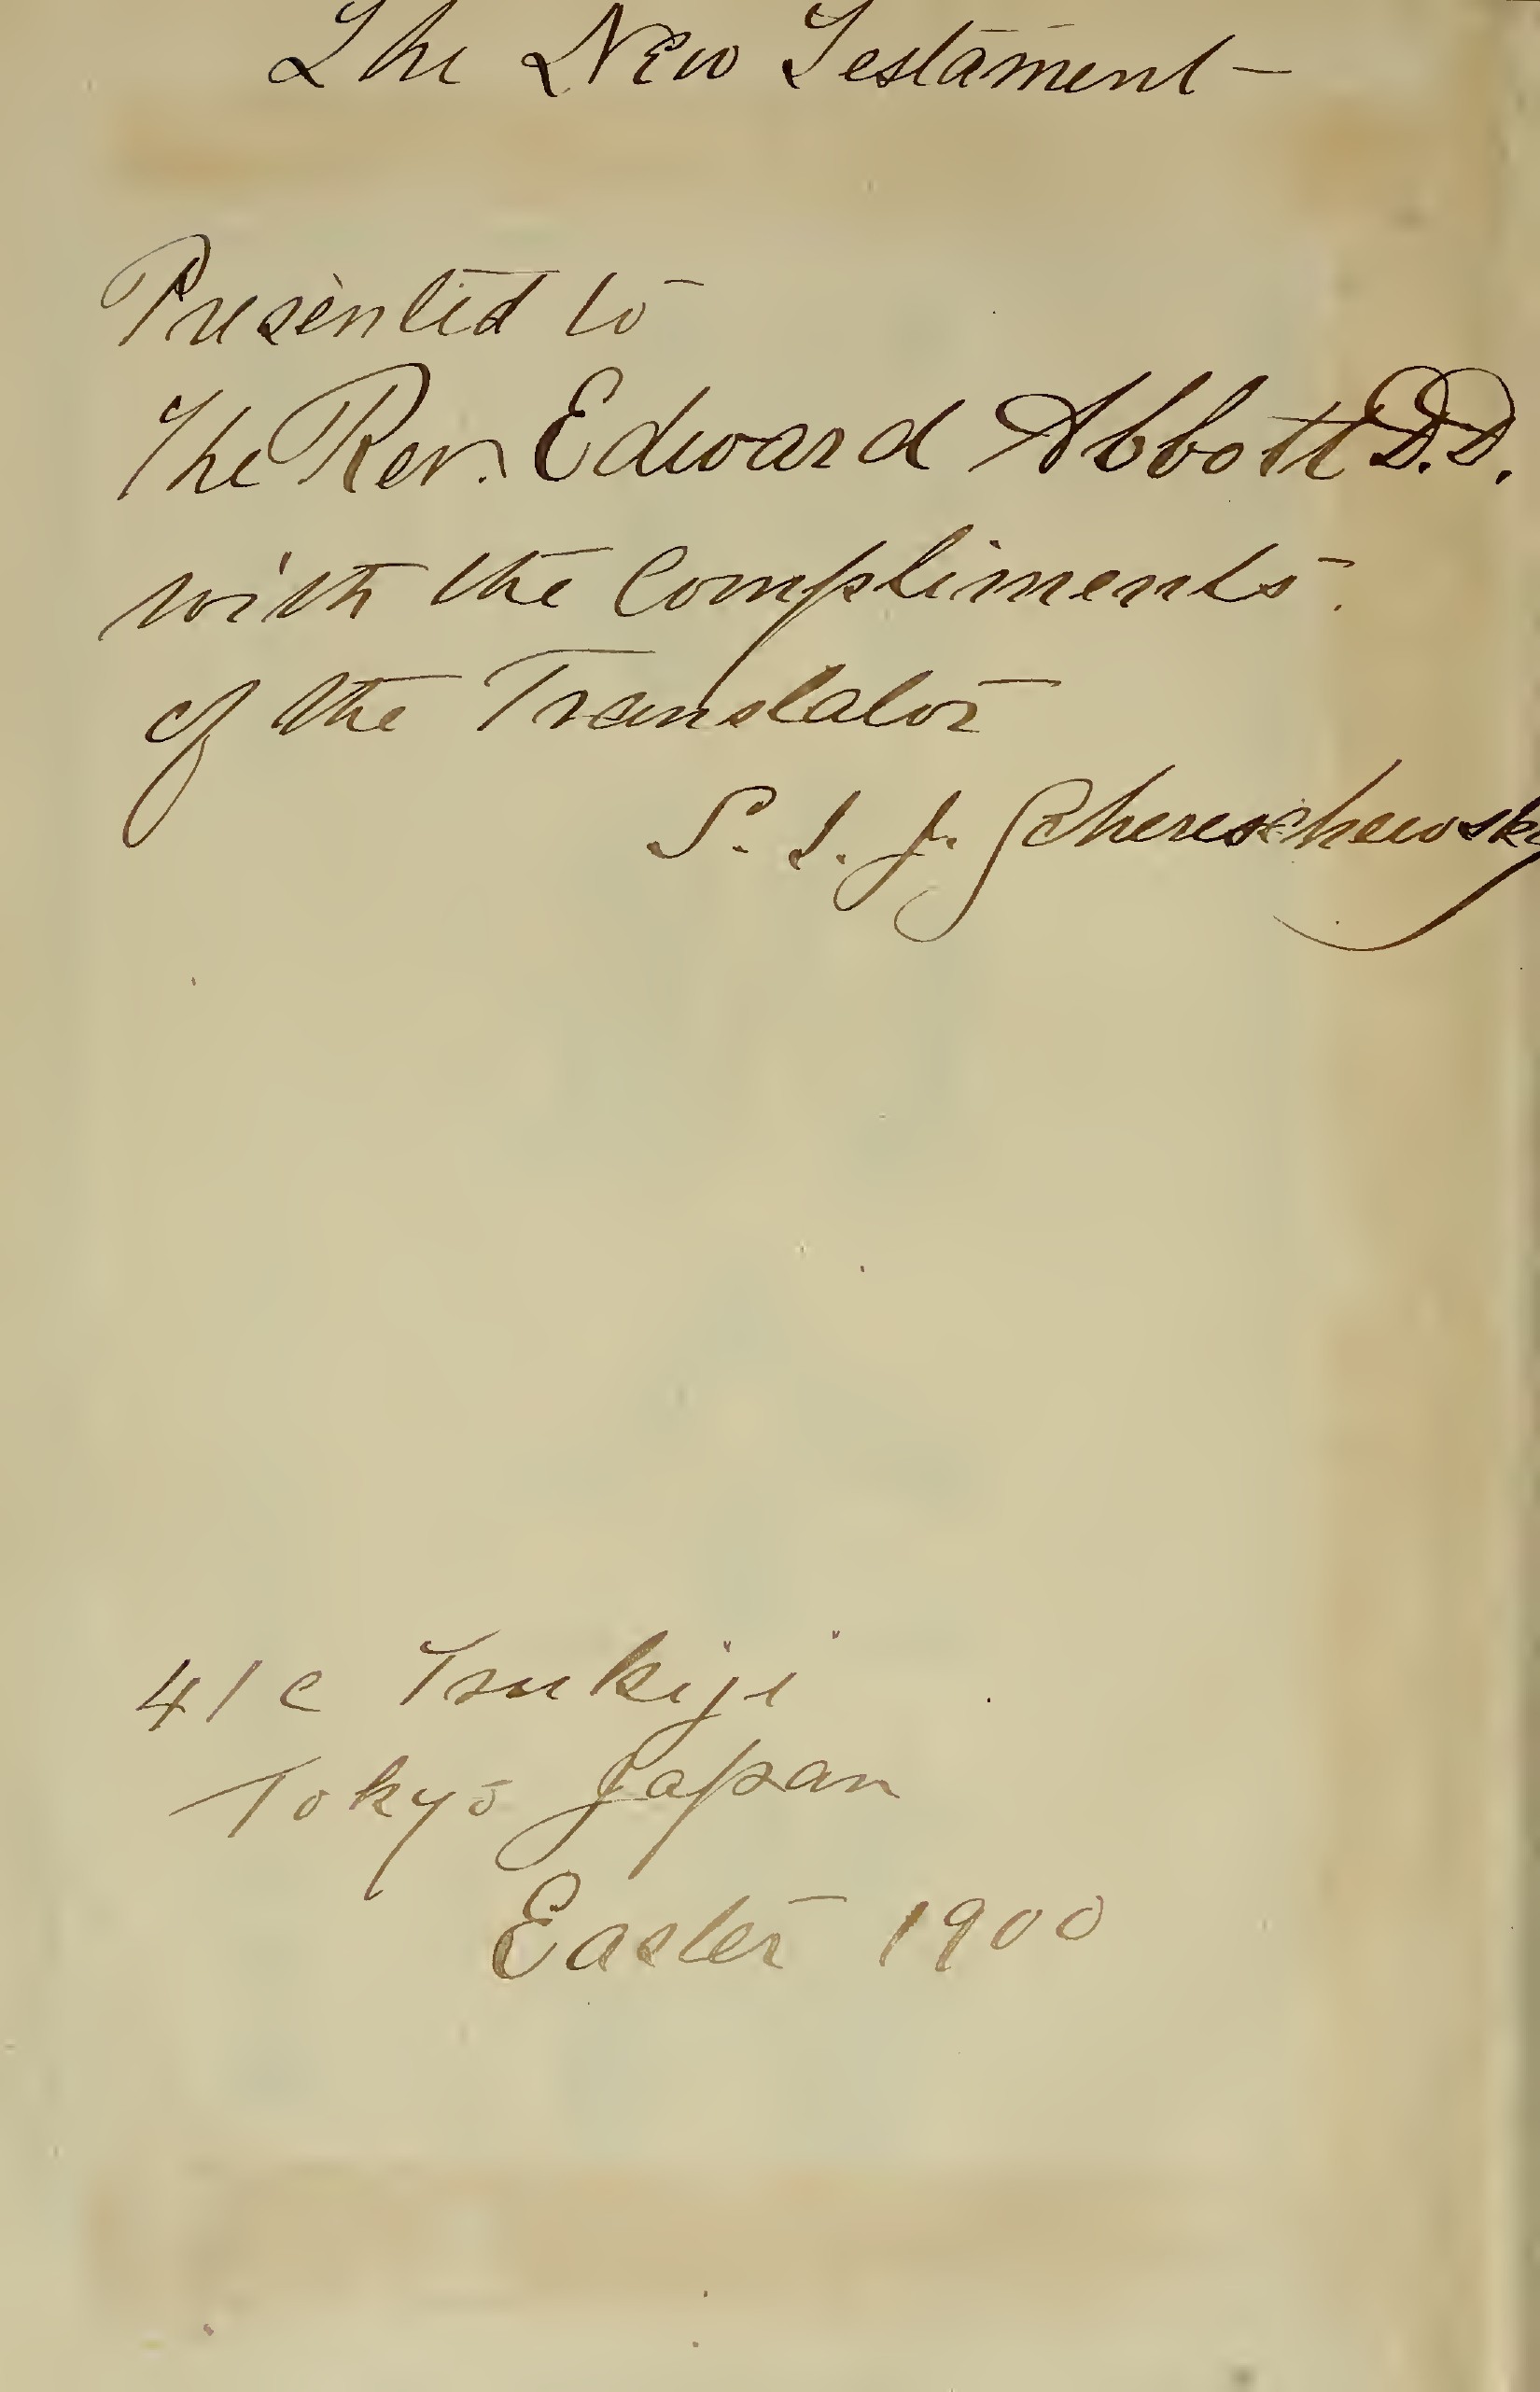 The New Testament –
Presented to
The Rev. Edward Abbott D.D.
with the Compliments.
of the Translator
S. I. J. Schereschewsky
41 c Tsukiji
Tokyo Japan
Easter 1900